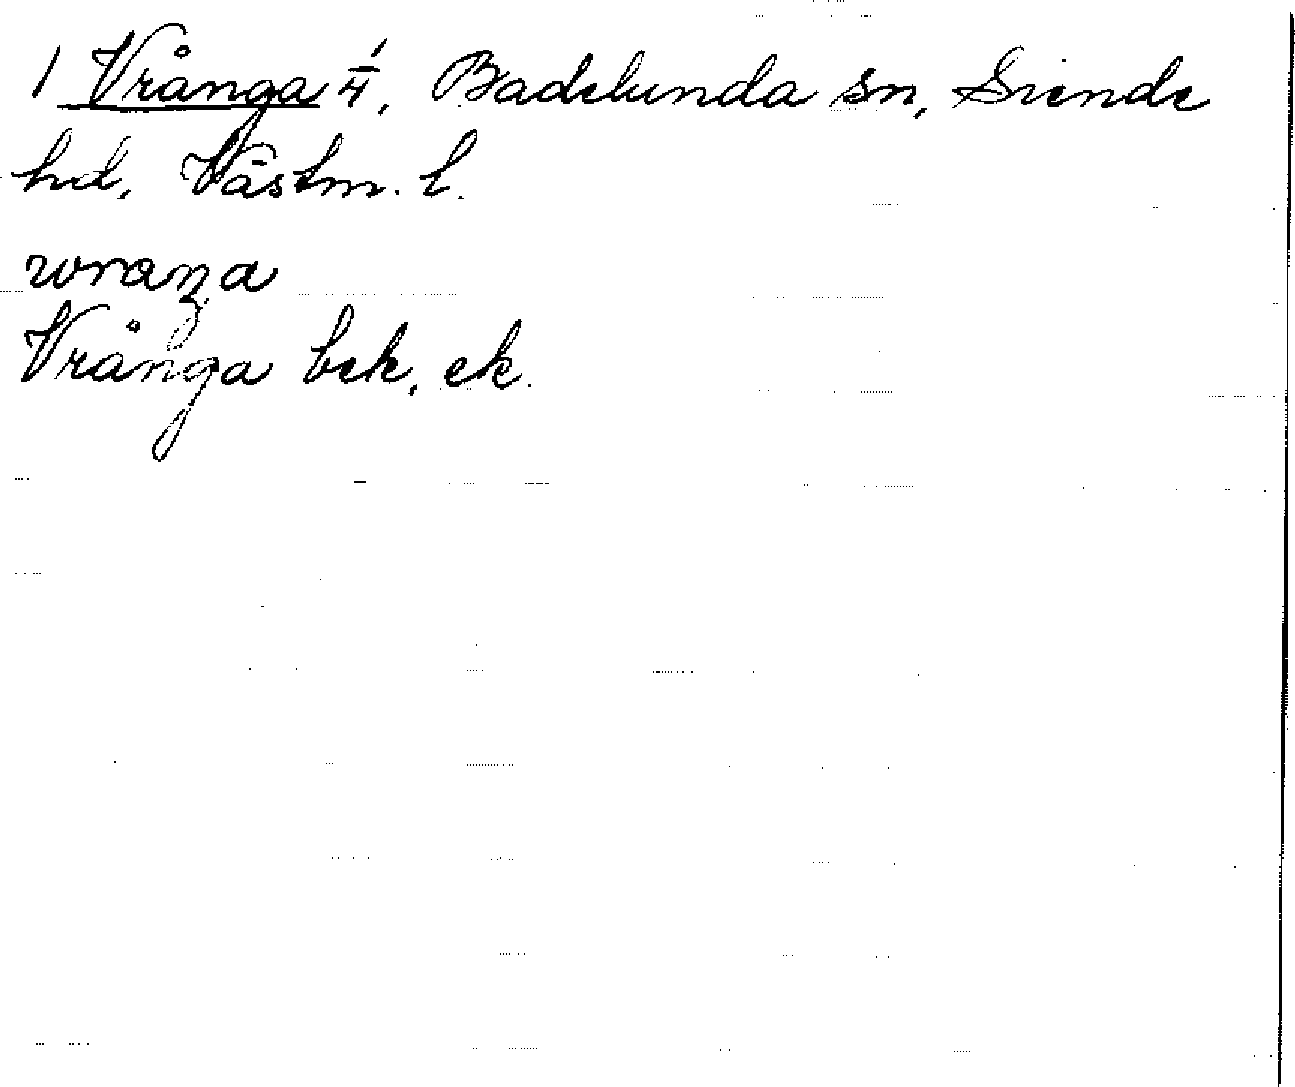 1 Vrånga 1/4, Badelunda sn, Siende
hd, Västm. l.
wranga
Vrånga bek, ek.